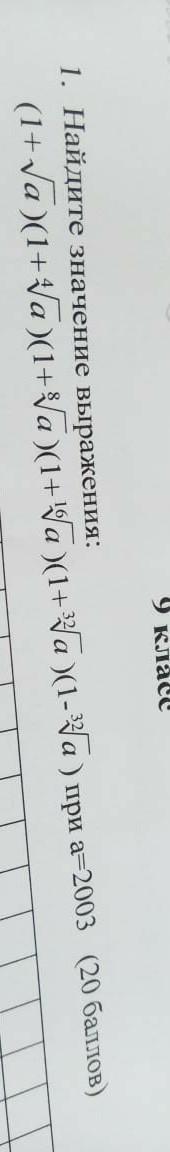 9 класс
1. Найдите значение выражения:
(1+√a)(1+⁴√a)(1+⁸√a)(1+¹⁶√a)(1+³²√a)(1-³²√a) при a=2003 (20 баллов)